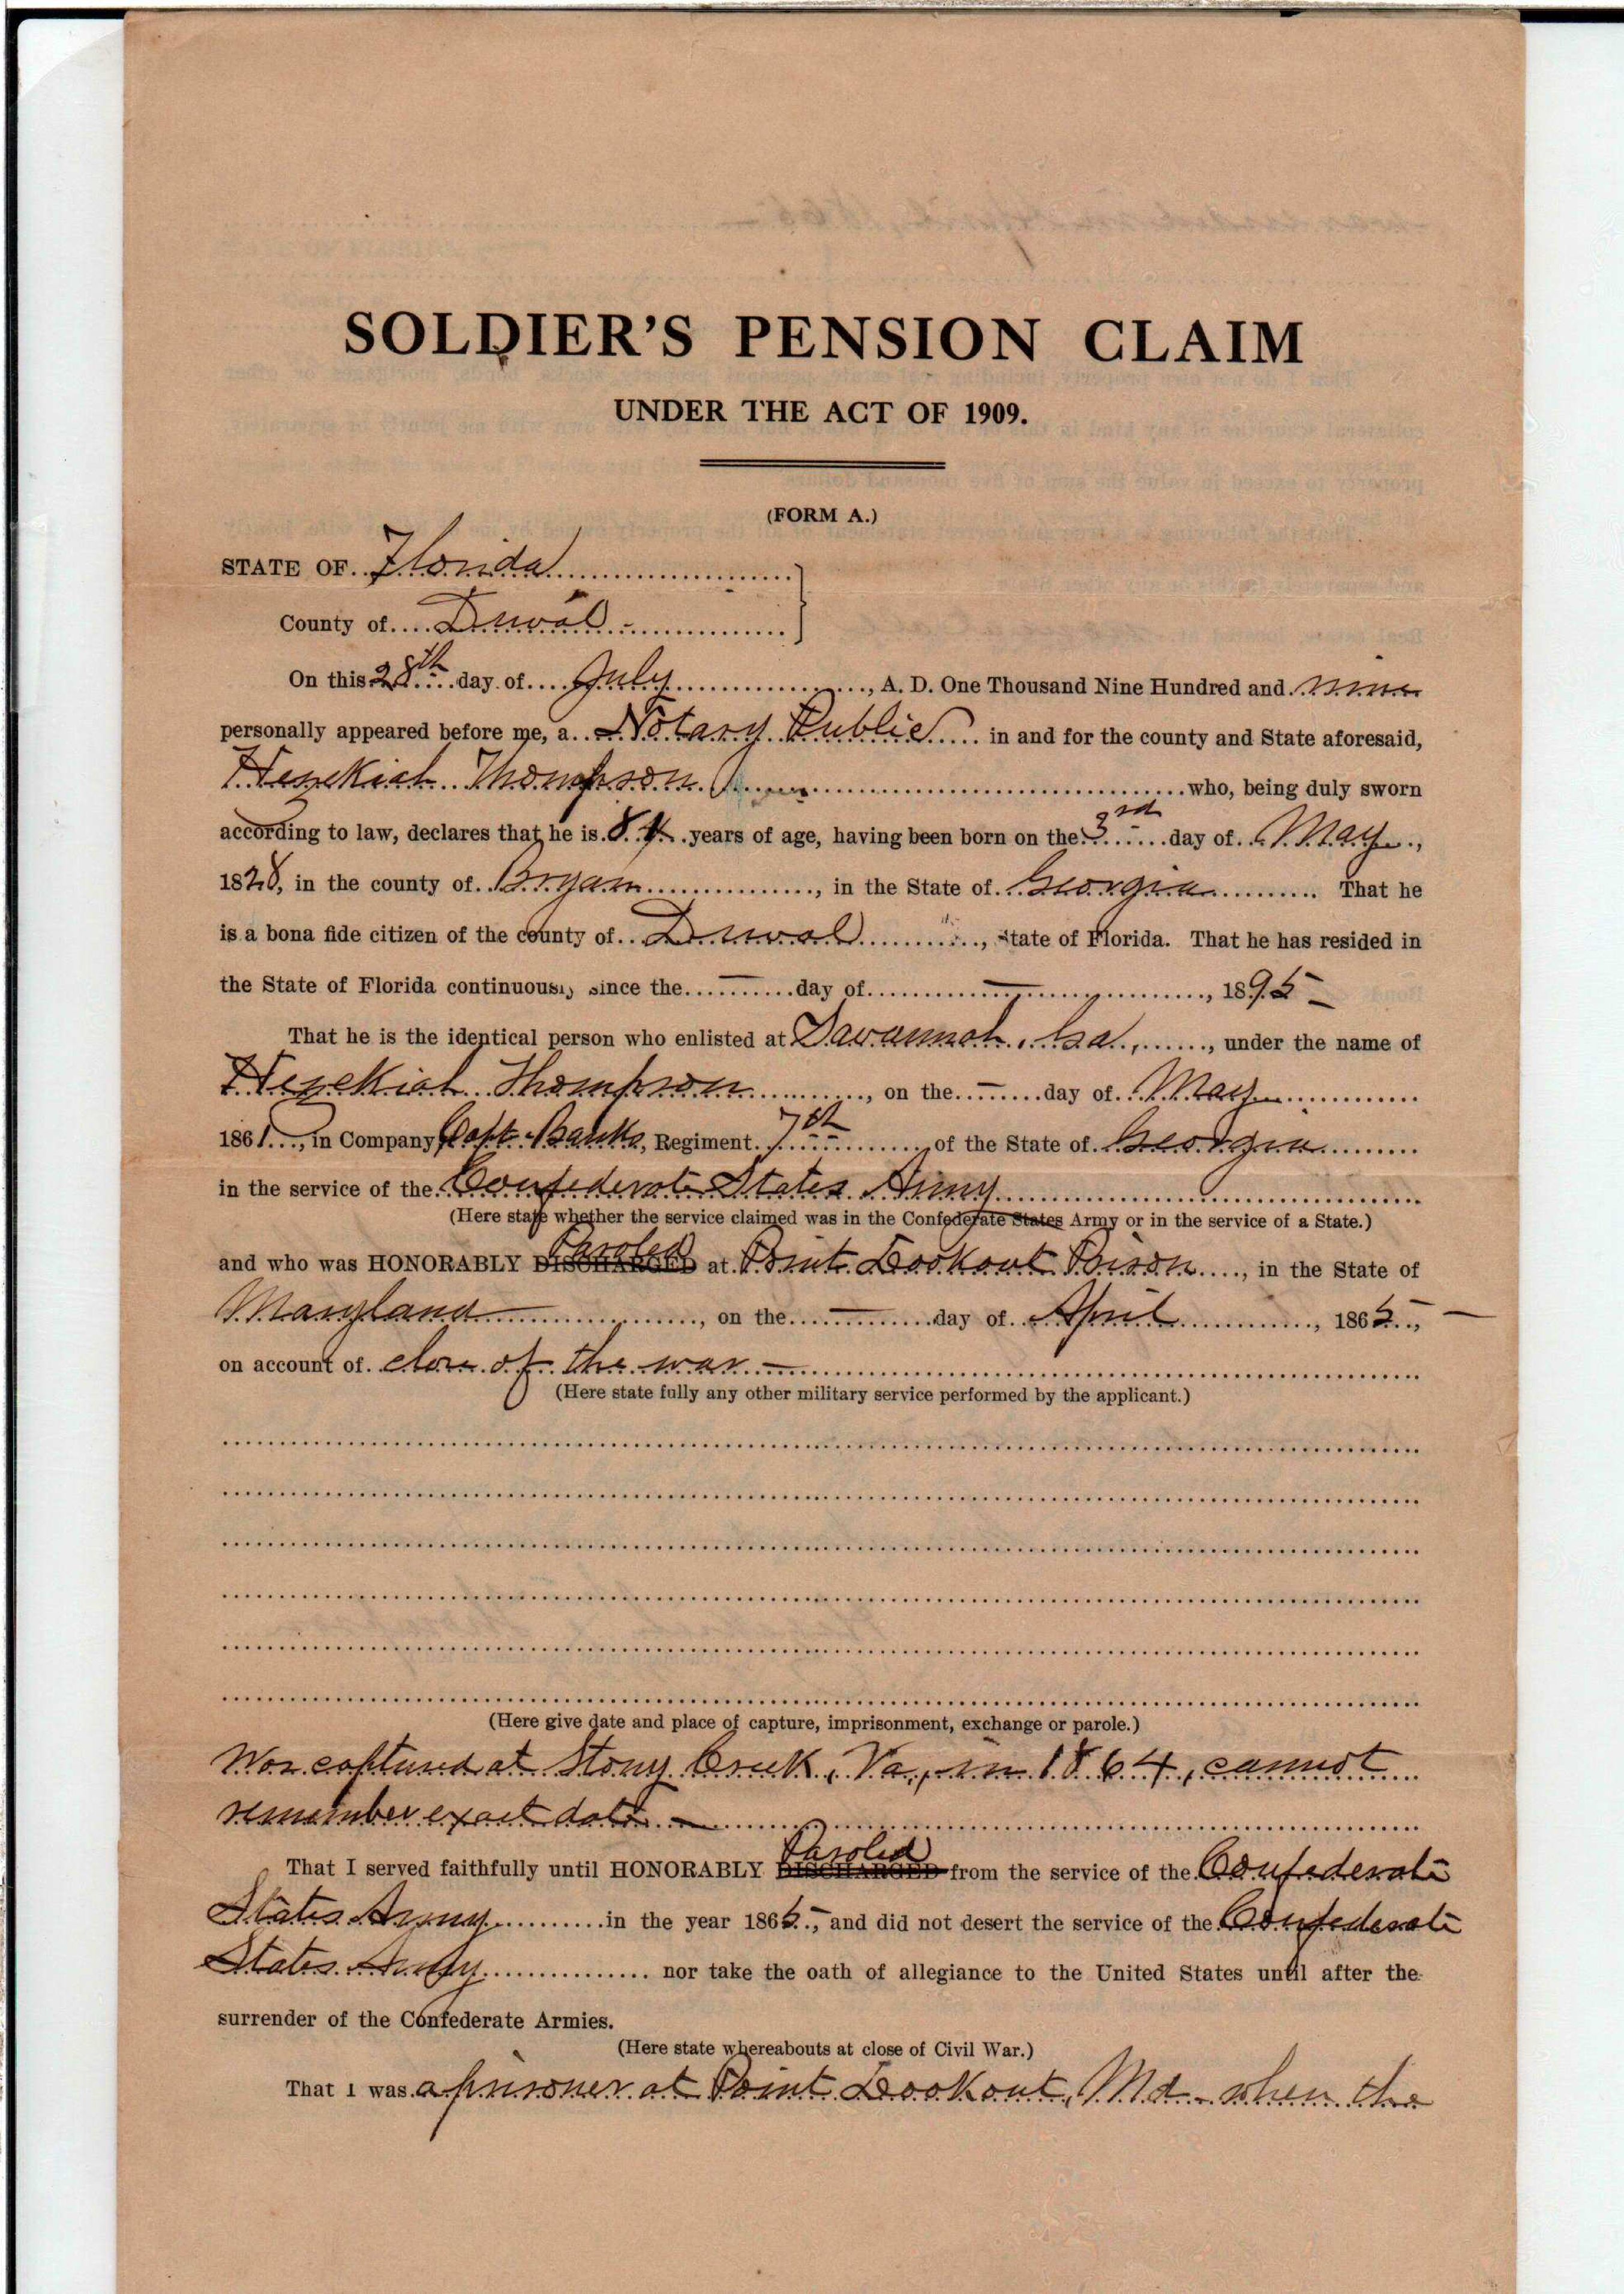 SOLDIER'S PENSION CLAIM
UNDER THE ACT OF 1909.
(FORM A.)
STATE OF Florida
County of Duval
On this 28th day of July, A. D. One Thousand Nine Hundred and nine
personally appeared before me, a Notary Public in and for the county and State aforesaid,
Hezekiah Thompson who, being duly sworn
according to law, declares that he is 81 years of age, having been born on the 3rd day of May,
1828, in the county of Bryan, in the State of Georgia. That he
is a bona fide citizen of the county of Duval, State of Florida. That he has resided in
the State of Florida continuously since the — day of —, 1895 —
That he is the identical person who enlisted at Savannah, Ga., under the name of
Hezekiah Thompson, on the — day of May
1861, in Company Capt. Banks, Regiment 7th of the State of Georgia
in the service of the Confederate States Army
(Here state whether the service claimed was in the Confederate States Army or in the service of a State.)
and who was HONORABLY DISCHARGED Paroled at Point Lookout Prison, in the State of
Maryland, on the — day of April, 1865, —
on account of close of the war —
(Here state fully any other military service performed by the applicant.)
(Here give date and place of capture, imprisonment, exchange or parole.)
Was captured at Stony Creek, Va., in 1864, cannot
remember exact date. —
That I served faithfully until HONORABLY DISCHARGED Paroled from the service of the Confederate
States Army in the year 1865, and did not desert the service of the Confederate
States Army nor take the oath of allegiance to the United States until after the
surrender of the Confederate Armies.
(Here state whereabouts at close of Civil War.)
That I was a prisoner at Point Lookout, Md. when the